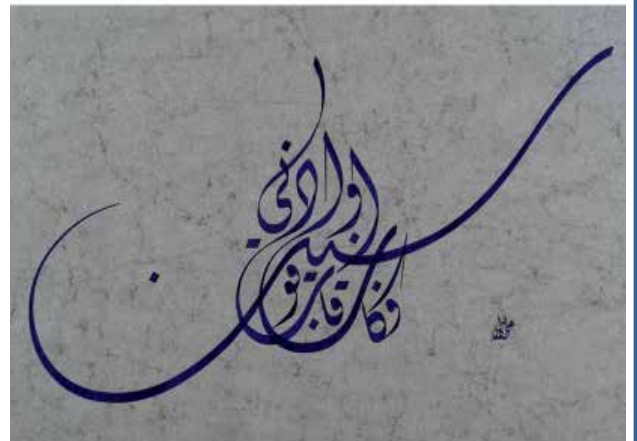 فكان قاب قوسين او ادنى